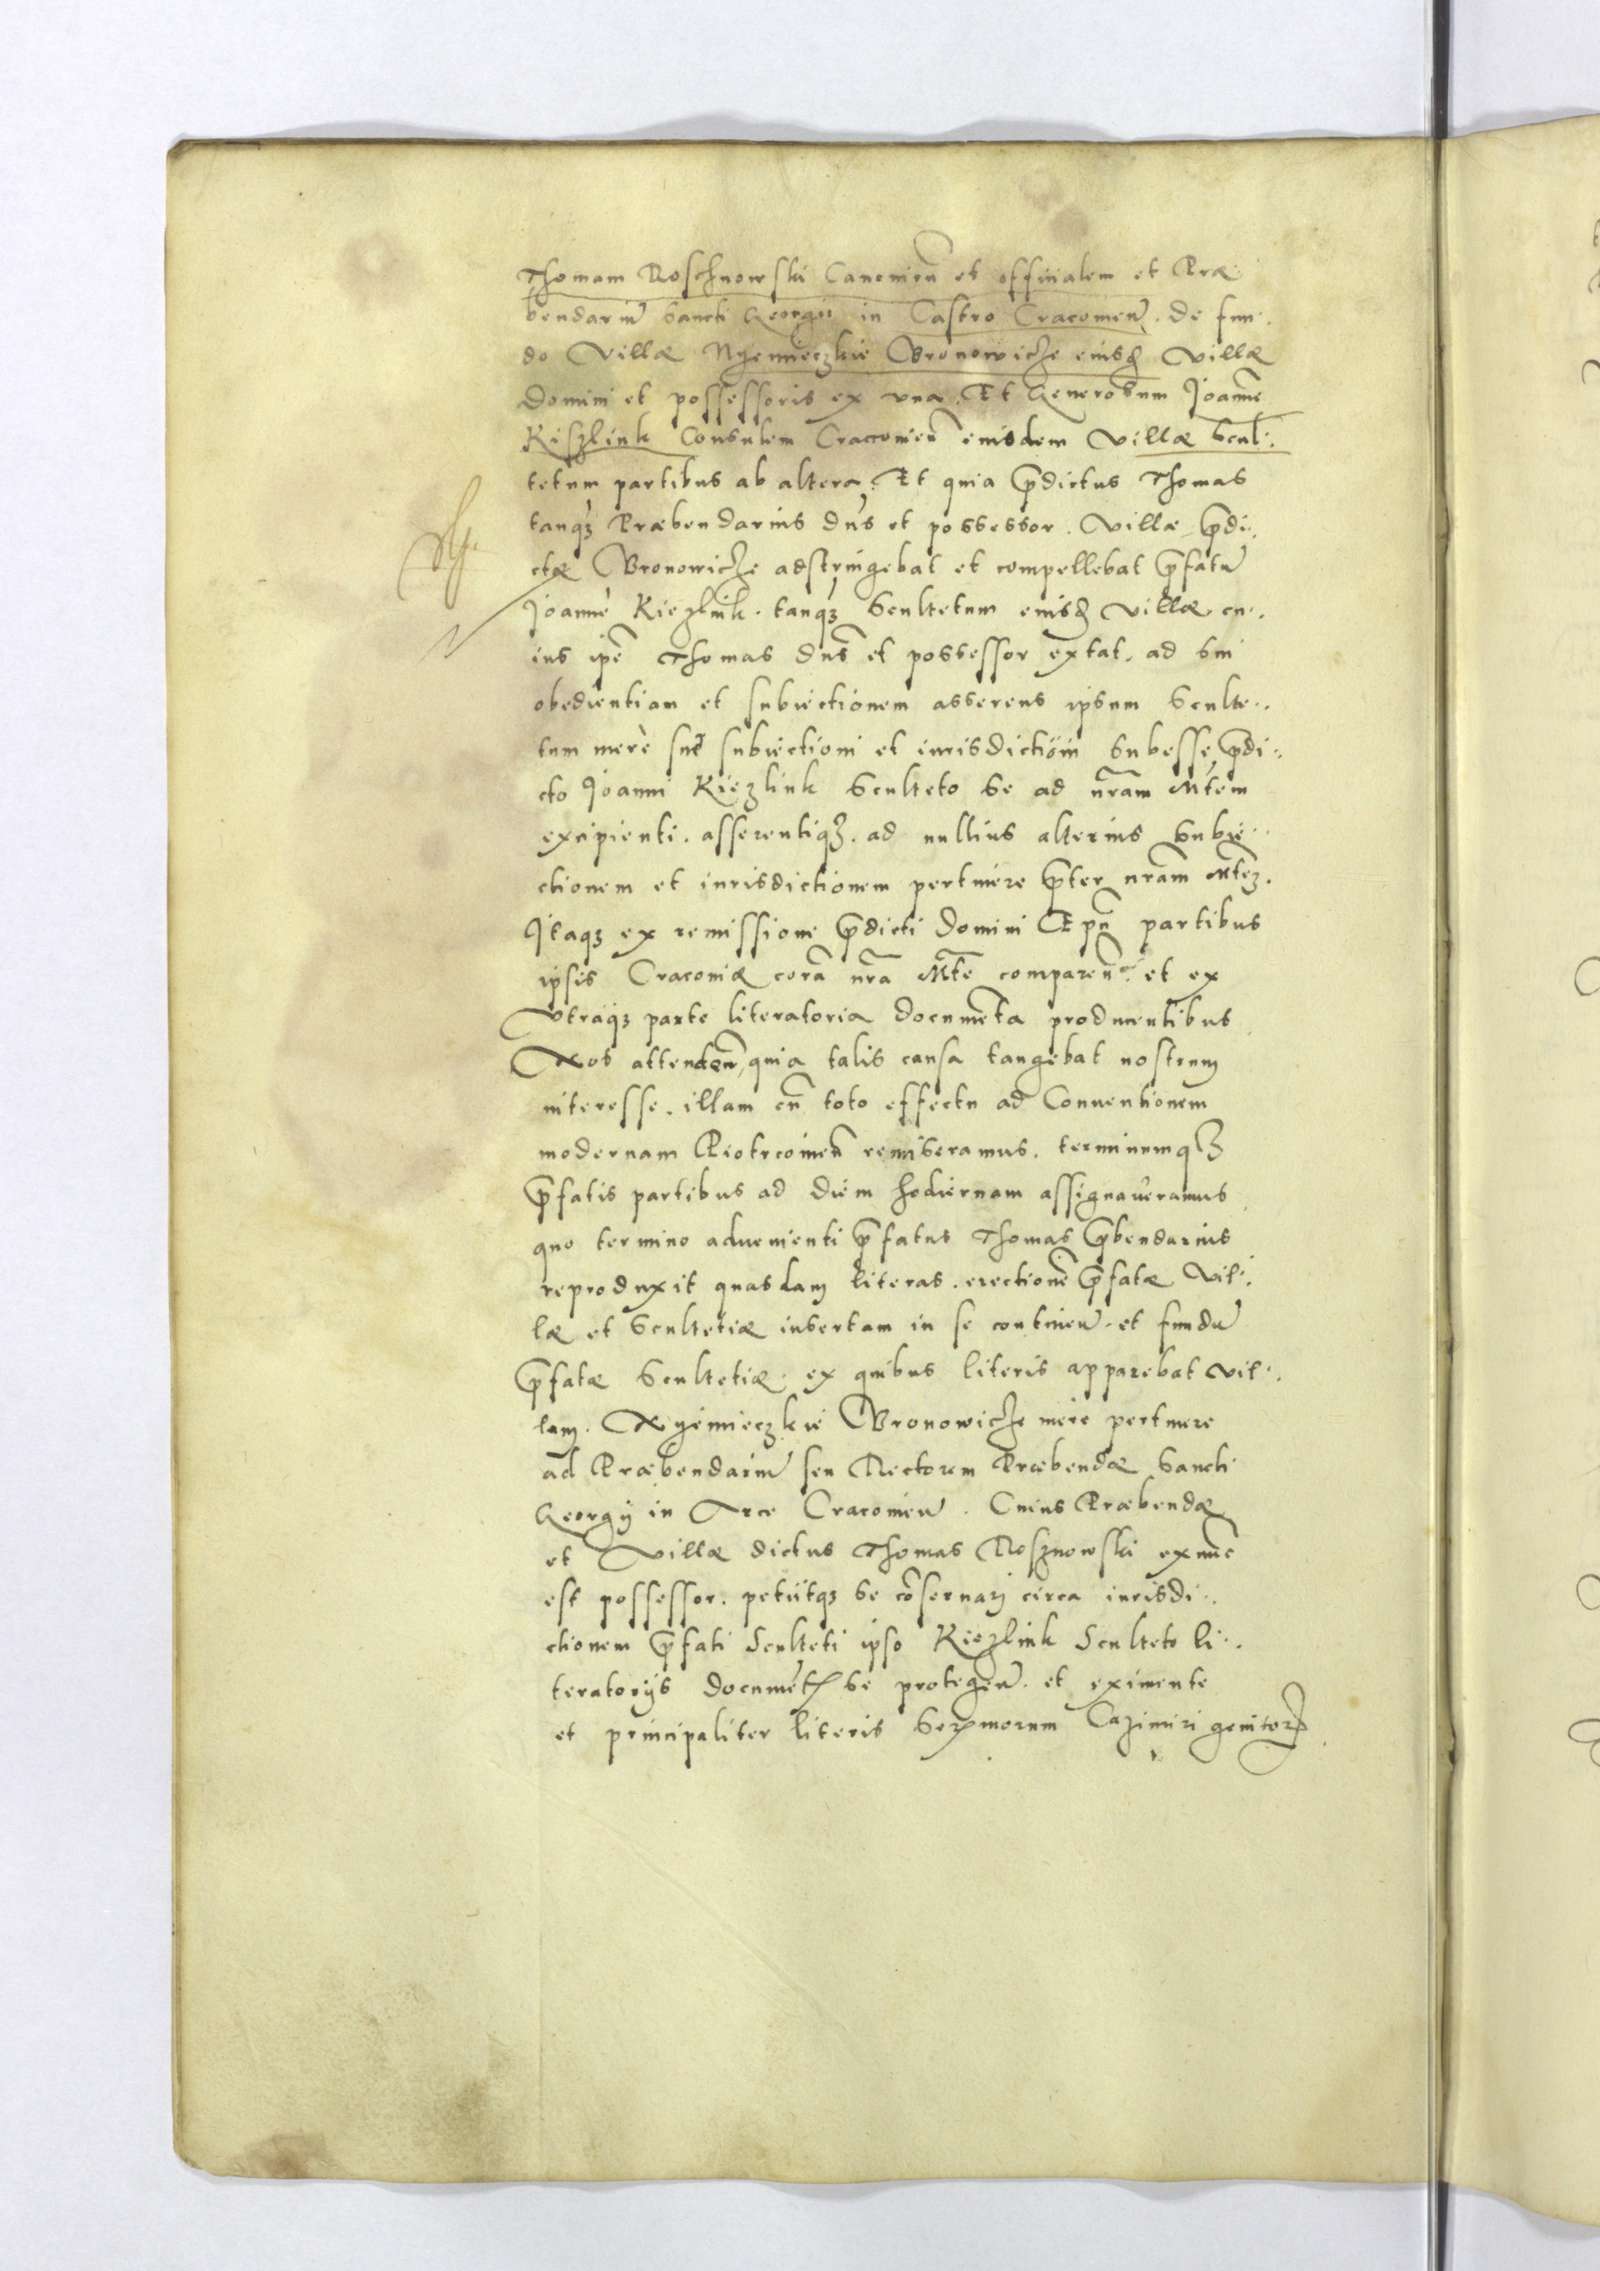 Thomam Roschnowski Canonicu͂ et officialem et Præ
bendariu͂ Sancti Georgii in Castro Cracouien͂. de fun:
do Villæ Nyemieczkie Bronowicze eiusd villæ
Domini et possessoris ex vna. Et Generosum Joanne͂
Kiszlink Consulem Cracouien͂ eiusdem villæ Scul:
tetum partibus ab altera. Et quia p͂dictus Thomas
tanq̃ꝫ Præbendarius dn͂s et possessor. Villæ p͂di:
ctæ Bronowicze adstringebat et compellebat p͂fatu͂
Joanne͂ Kiezlink. tanq̃ꝫ Scultetum eiusd villæ cu:
ius ip͂e Thomas dn͂s et possessor extat. ad sui
obedientiam et subiectionem asserens ipsum Sculte:
tum merè suæ subiectioni et iurisdictioni subesse, p͂di:
cto Joanni Kiezlink Sculteto se ad nr͂am Mt͂em
excipienti. asserentiqꝫ. ad nullius alterius subie:
ctionem et iurisdictionem pertinere p͂ter nr͂am Mt͂eꝫ.
Itaqꝫ ex remissione p͂dicti Domini Ep͂i partibus
ipsis Cracouiæ cora͂ nr͂a Mt͂e comparen͂. et ex
vtraqꝫ parte literatoria docume͂ta producentibus
Nos attenden͂, quia talis causa tangebat nostrum
interesse. illam cu͂ toto effectu ad Conuentionem
modernam Piotrcouien͂ remiseramus. terminumqꝫ
p͂fatis partibus ad diem hodiernam assignaueramus
quo termino aduenienti p͂fatus Thomas p͂bendarius
reproduxit quasdam literas. erectione͂ p͂fatæ Vil:
læ et Scultetiæ insertam in se continen͂. et fundu͂
p͂fatæ Scultetiæ. ex quibus literis apparebat vil:
lam. Nyemieczkie Bronowicze mere pertinere
ad Præbendariu͂ seu Rectorem Præbendæ Sancti
Georgij in Arce Cracouien͂. Cuius Præbendæ
et Villæ dictus Thomas Rosznowski exnu͂c
est possessor. petiitqꝫ se co͂seruari circa iurisdi:
ctionem p͂fati Sculteti ipso Kiezlink Sculteto li:
teratorijs docume͂t͂ se protegen͂. et eximente
et principaliter literis Ser͂morum Cazimiri genitor͂